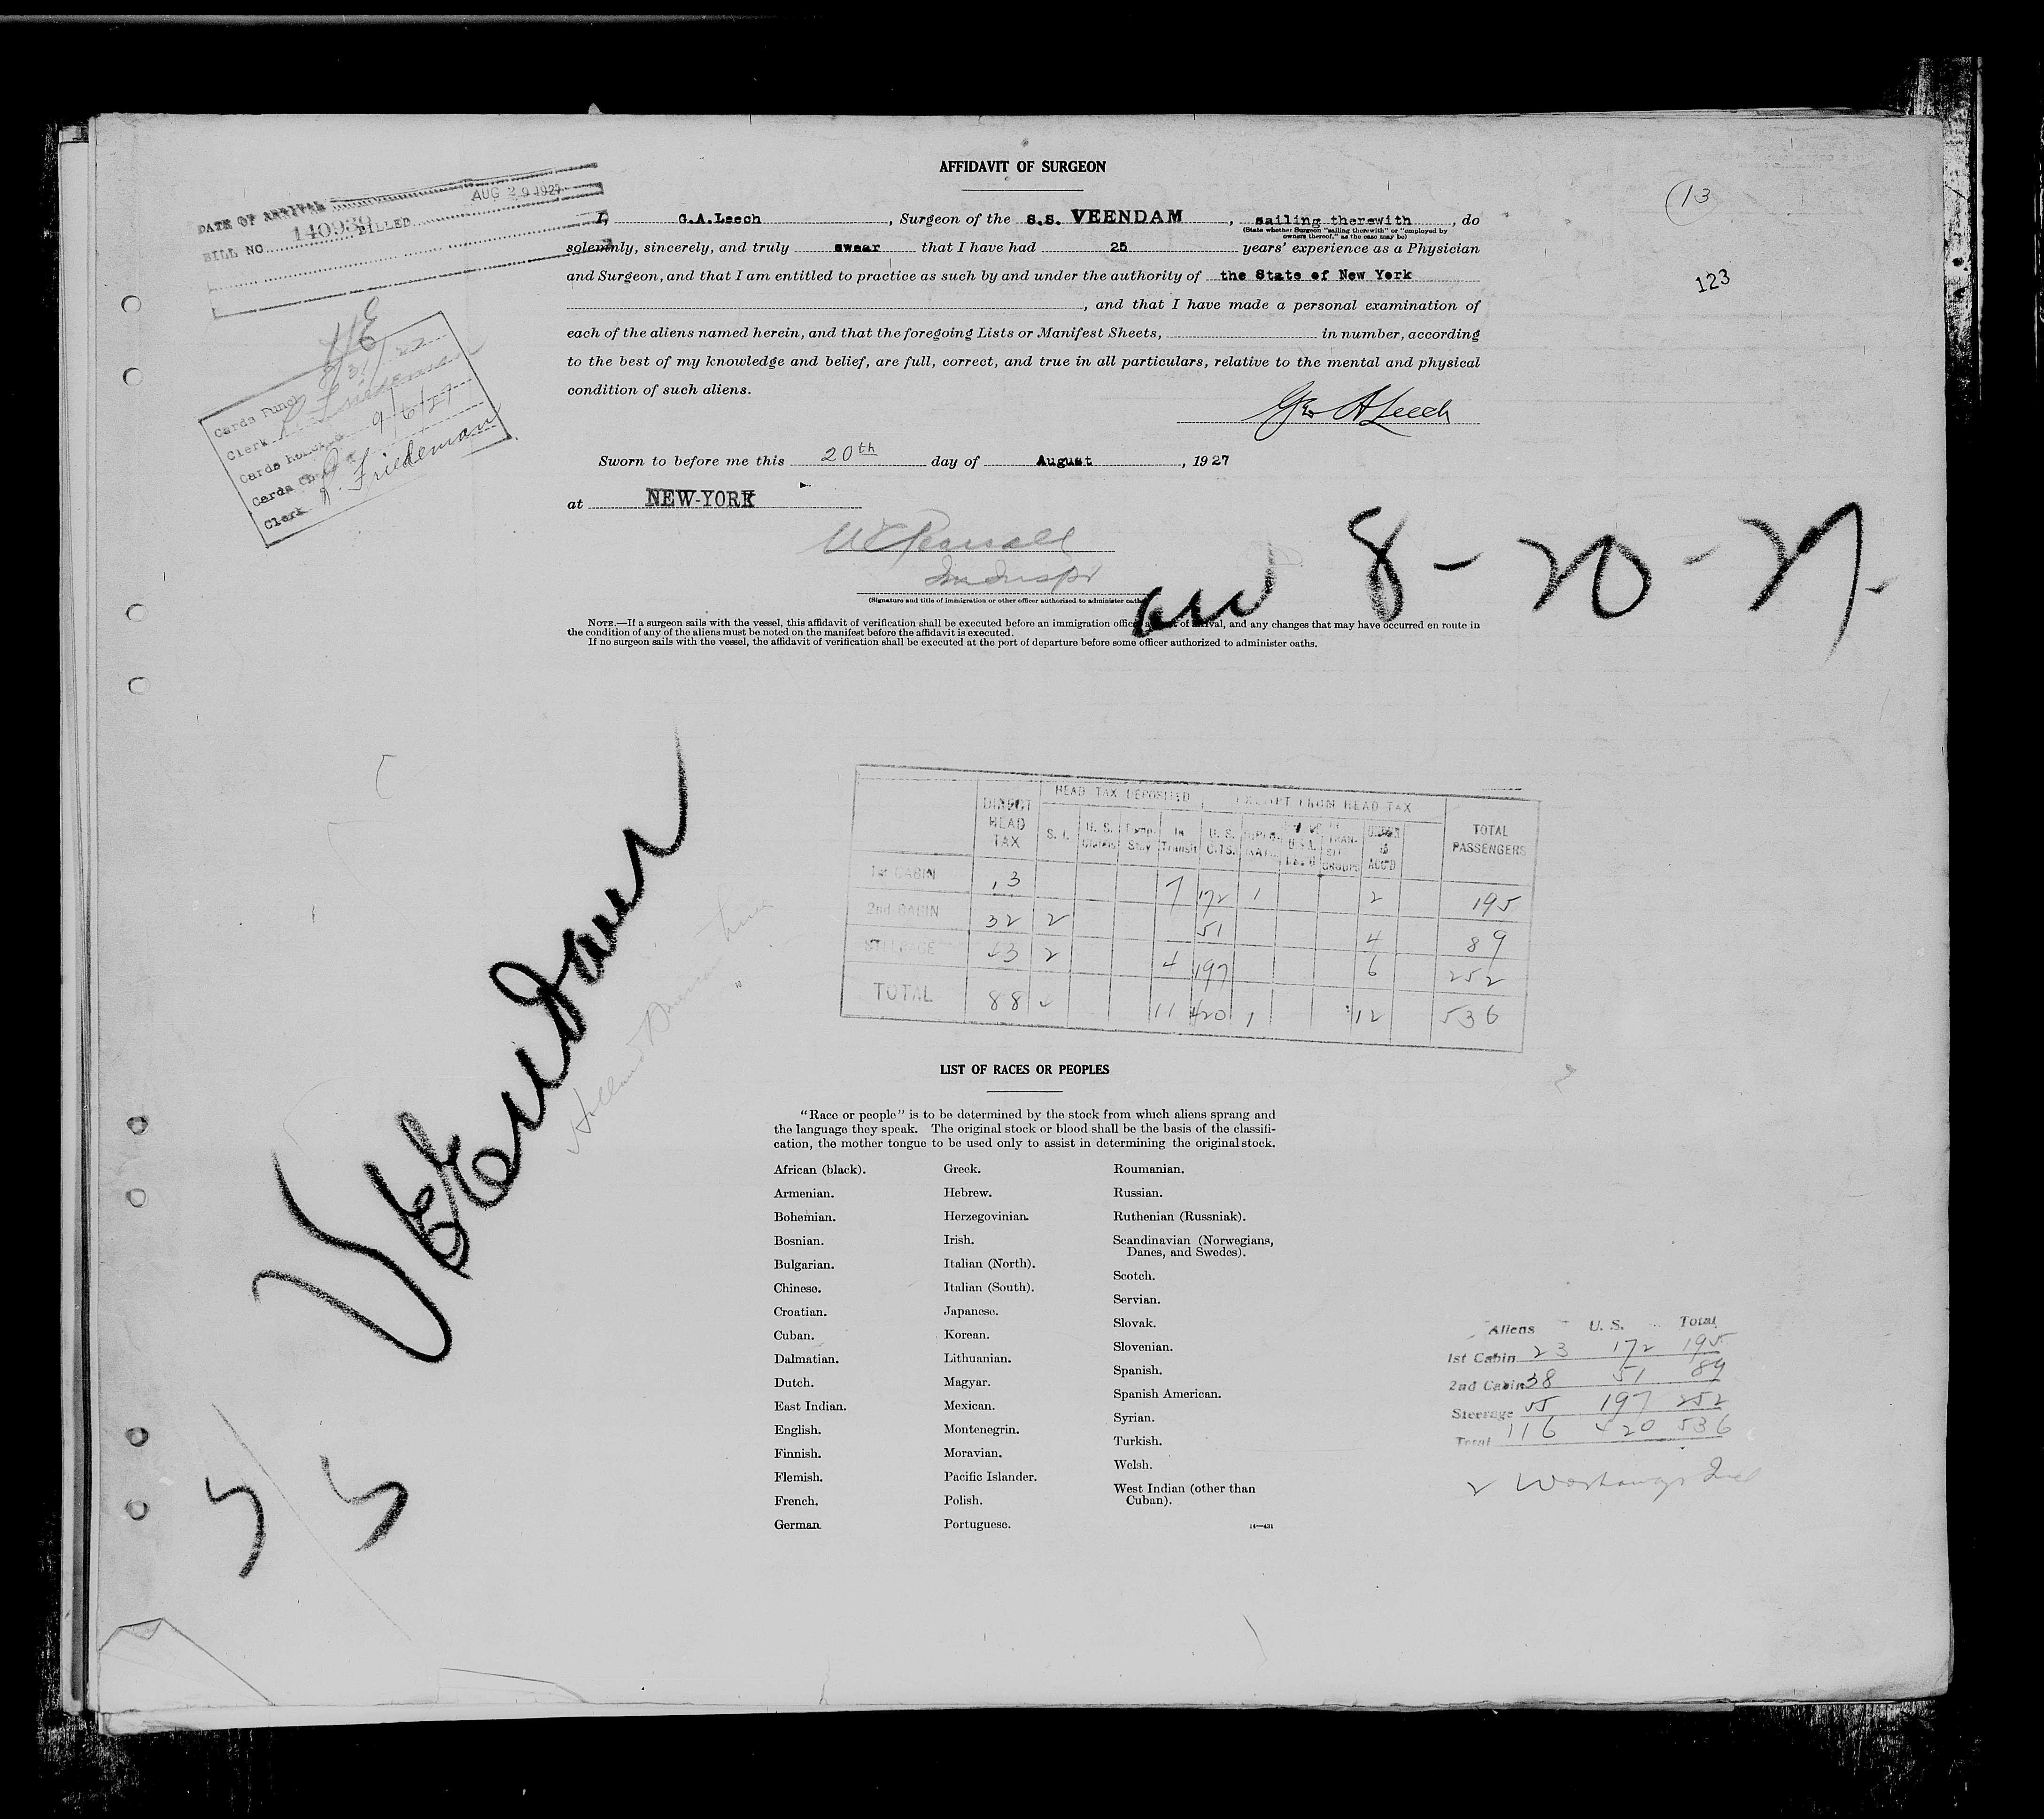 AFFIDAVIT OF SURGEON
DATE OF ARRIVAL AUG 20 1927
BILL NO. 140939 BILLED
(13
123
I, G.A.Leech, Surgeon of the S.S. VEENDAM, sailing therewith, do
(State whether Surgeon "sailing therewith" or "employed by
owners thereof," as the case may be)
solemnly, sincerely, and truly swear that I have had 25 years' experience as a Physician
and Surgeon, and that I am entitled to practice as such by and under the authority of the State of New York
, and that I have made a personal examination of
each of the aliens named herein, and that the foregoing Lists or Manifest Sheets, in number, according
to the best of my knowledge and belief, are full, correct, and true in all particulars, relative to the mental and physical
condition of such aliens.
Geo A Leech
Cards Punch
Clerk
Cards
9/6/27
Cards
Clerk R. Friedeman
Sworn to before me this 20th day of August, 1927
at NEW-YORK
(Signature and title of immigration or other officer authorized to administer oaths)
arr 8-20-27.
NOTE.—If a surgeon sails with the vessel, this affidavit of verification shall be executed before an immigration officer at port of arrival, and any changes that may have occurred en route in
the condition of any of the aliens must be noted on the manifest before the affidavit is executed.
If no surgeon sails with the vessel, the affidavit of verification shall be executed at the port of departure before some officer authorized to administer oaths.
HEAD TAX DEPOSITED EXEMPT FROM HEAD TAX
DIRECT HEAD TAX S. I. U. S. Temp. Stay In Transit U. S. CITS. TOTAL PASSENGERS
1st CABIN 13 7 172 1 2 195
2nd CABIN 32 2 51 4 89
STEERAGE 43 2 4 197 6 252
TOTAL 88 4 11 420 1 12 536
S/S Veendam
Holland America Line
LIST OF RACES OR PEOPLES
"Race or people" is to be determined by the stock from which aliens sprang and
the language they speak. The original stock or blood shall be the basis of the classifi-
cation, the mother tongue to be used only to assist in determining the original stock.
African (black).
Armenian.
Bohemian.
Bosnian.
Bulgarian.
Chinese.
Croatian.
Cuban.
Dalmatian.
Dutch.
East Indian.
English.
Finnish.
Flemish.
French.
German.
Greek.
Hebrew.
Herzegovinian.
Irish.
Italian (North).
Italian (South).
Japanese.
Korean.
Lithuanian.
Magyar.
Mexican.
Montenegrin.
Moravian.
Pacific Islander.
Polish.
Portuguese.
Roumanian.
Russian.
Ruthenian (Russniak).
Scandinavian (Norwegians,
Danes, and Swedes).
Scotch.
Servian.
Slovak.
Slovenian.
Spanish.
Spanish American.
Syrian.
Turkish.
Welsh.
West Indian (other than
Cuban).
14—431
Aliens U. S. Total
1st Cabin 23 172 195
2nd Cabin 38 51 89
Steerage 55 197 252
Total 116 420 536